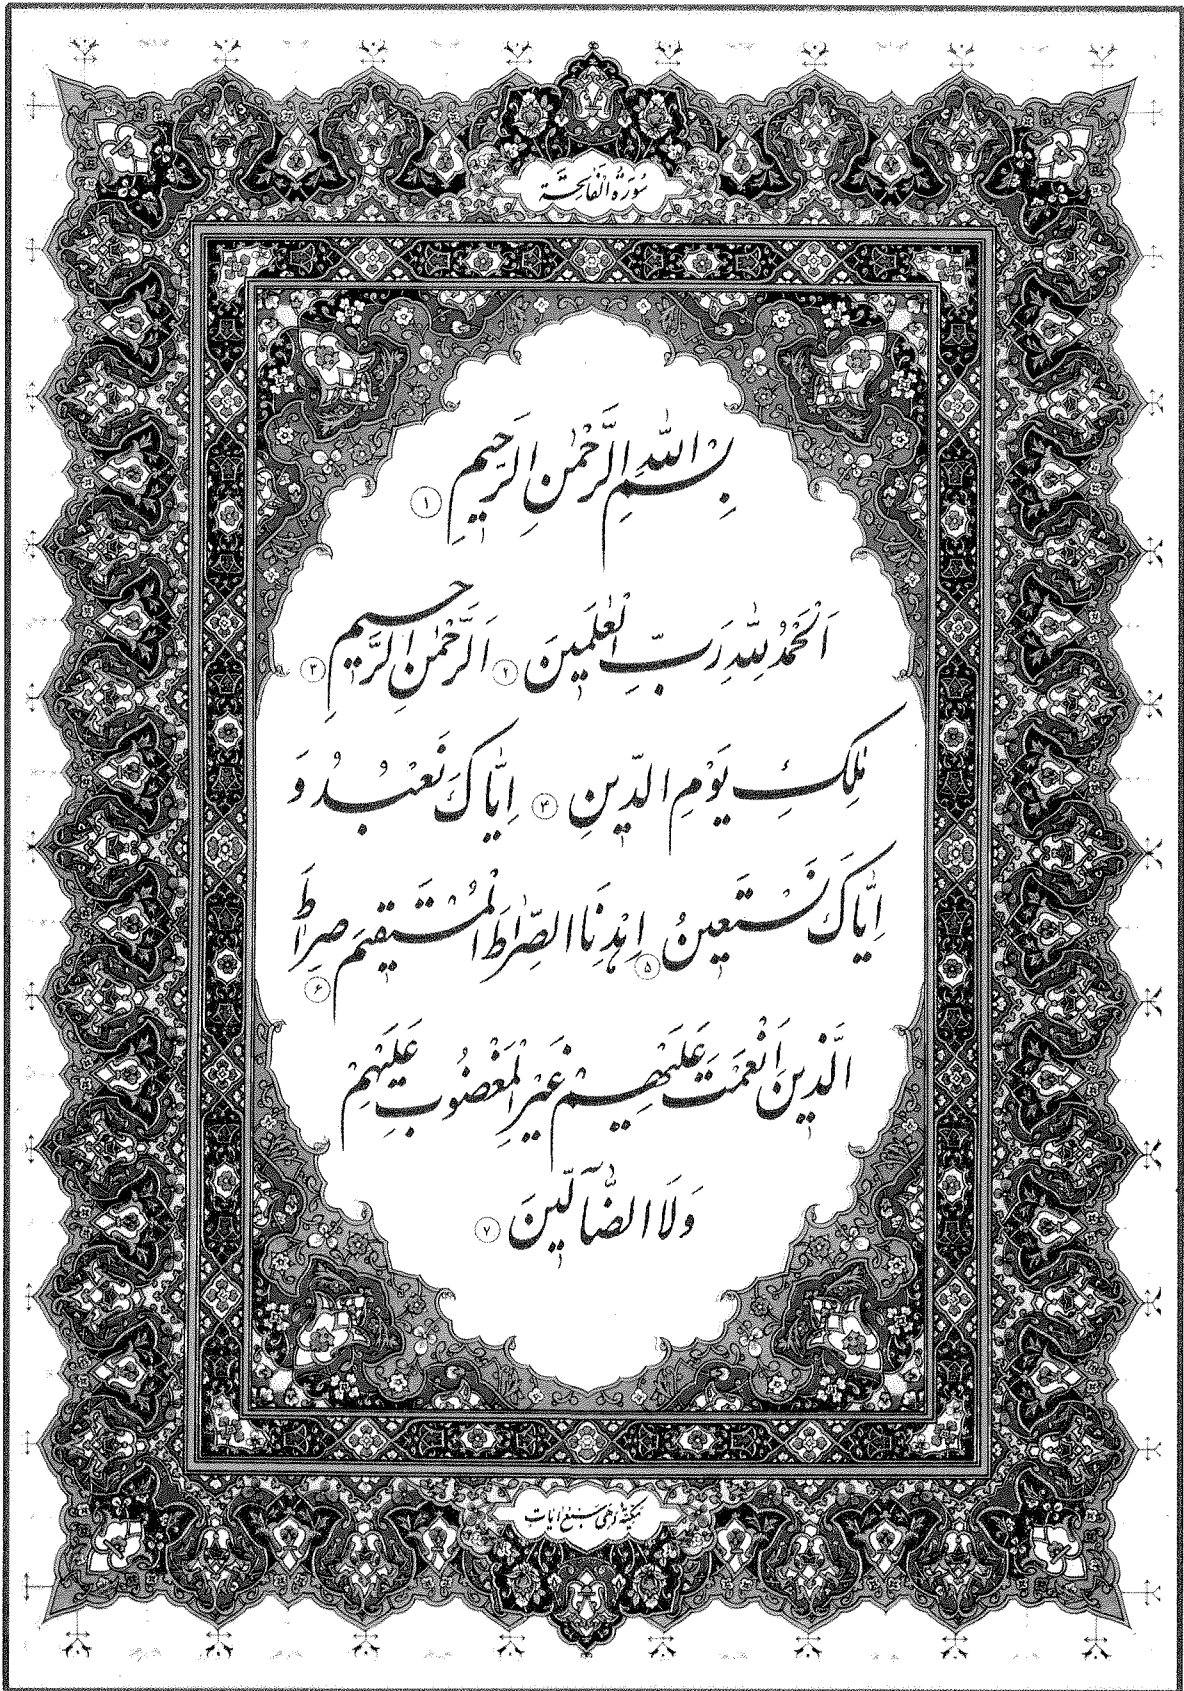 سُورَةُ الْفَاتِحَة
بِسْمِ اللّٰهِ الرَّحْمٰنِ الرَّحِيمِ ۱
اَلْحَمْدُ لِلّٰهِ رَبِّ الْعٰلَمِينَ ۲ اَلرَّحْمٰنِ الرَّحِيمِ ۳
مٰلِكِ يَوْمِ الدّينِ ۴ اِيَّاكَ نَعْبُدُ وَ
اِيَّاكَ نَسْتَعِينُ ۵ اِهْدِنَا الصِّرٰطَ الْمُسْتَقِيمَ ۶ صِرٰطَ
الَّذِينَ اَنْعَمْتَ عَلَيْهِمْ غَيْرِ الْمَغْضُوبِ عَلَيْهِمْ
وَلَا الضَّآلّينَ ۷
مَكّيّةٌ وَهِيَ سَبْعُ اٰيَاتٍ